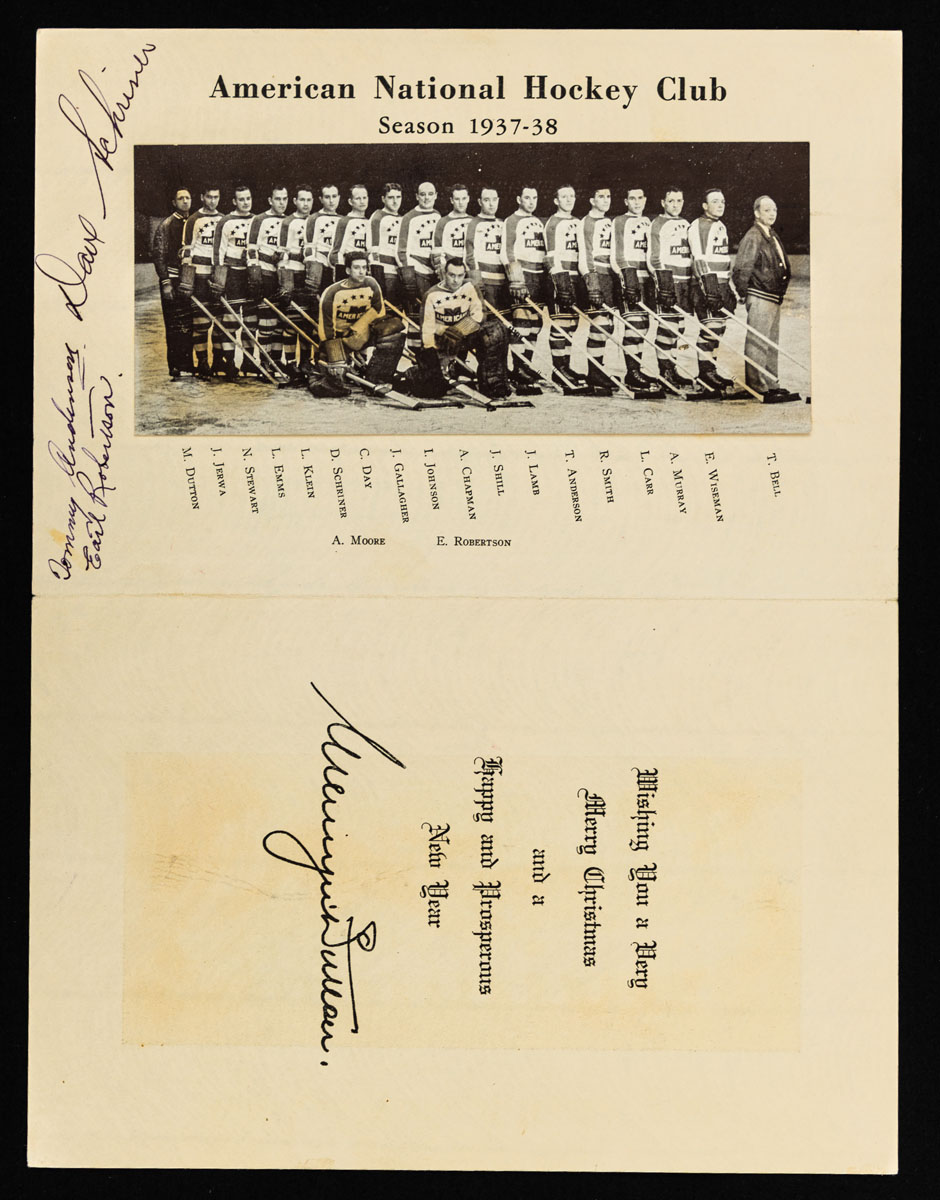 American National Hockey Club
Season 1937-38
Dave Schriner
Tommy Anderson
Earl Robertson.
AMERICANS
AMERICANS
M. DUTTON
J. JERWA
N. STEWART
L. EMMS
L. KLEIN
D. SCHRINER
C. DAY
J. GALLAGHER
I. JOHNSON
A. CHAPMAN
J. SHILL
J. LAMB
T. ANDERSON
R. SMITH
L. CARR
A. MURRAY
E. WISEMAN
T. BELL
A. MOORE
E. ROBERTSON
Wishing You a Very
Merry Christmas
and a
Happy and Prosperous
New Year
Mervyn Dutton.